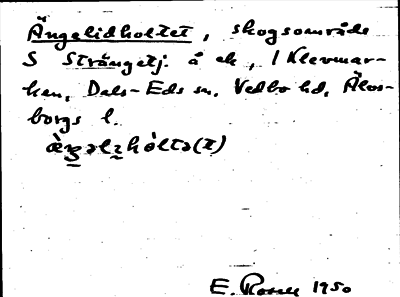 Ängelidholtet, skogsområde
S Strängetj. å ek, i Klevmar-
ken, Dals-Eds sn. Vedbo hd, Älvs-
borgs l.
E. Rosell 1950